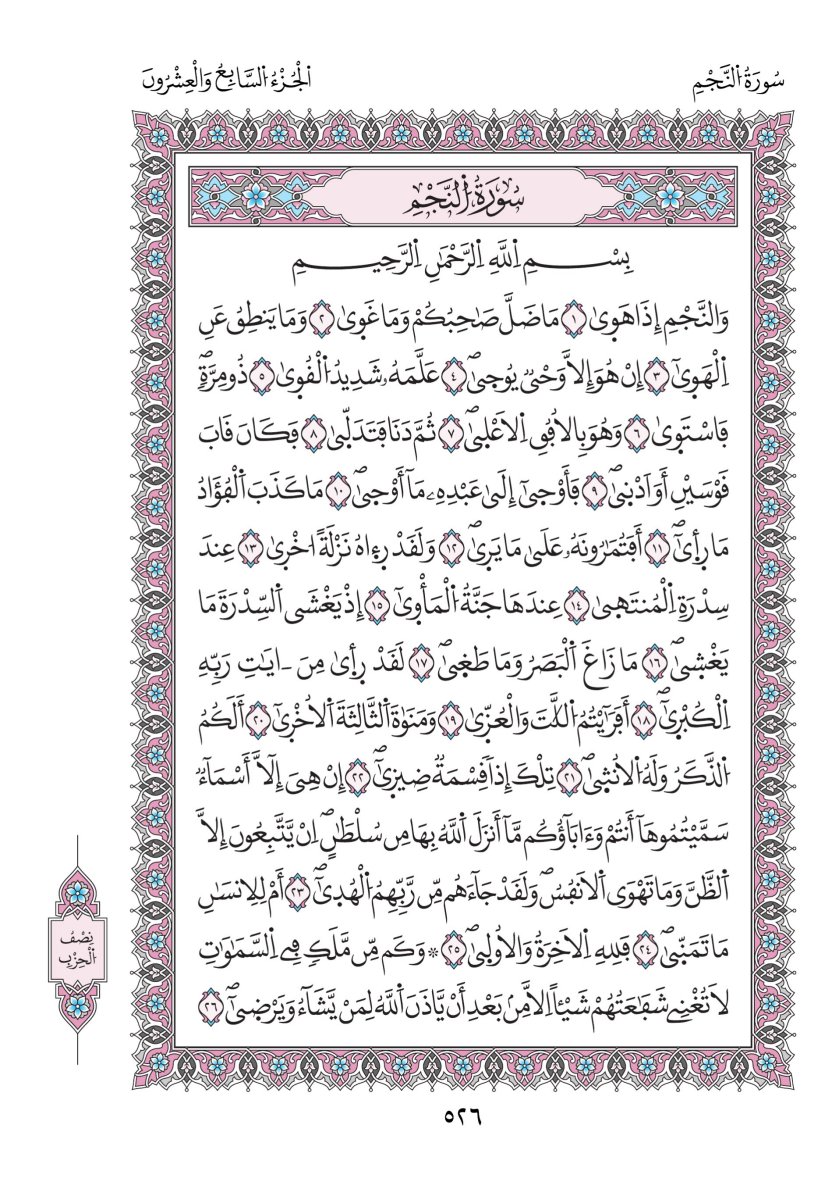 سُورَةُ اُ۬لنَّجْمِ
اَ۬لْجُزْءُ اُ۬لسَّابِعُ وَالْعِشْرُونَ
سُورَةُ اُ۬لنَّجْمِ
بِسْمِ اِ۬للَّهِ اِ۬لرَّحْمَٰنِ اِ۬لرَّحِيمِ
وَالنَّجْمِ إِذَا هَوٜىٰ ١ مَا ضَلَّ صَٰحِبُكُمْ وَمَا غَوٜىٰ ٢ وَمَا يَنطِقُ عَنِ
اِ۬لْهَوٜىٰٓ ٣ إِنْ هُوَ إِلَّا وَحْيٞ يُوحٜىٰۖ ٤ عَلَّمَهُۥ شَدِيدُ اُ۬لْقُوٜىٰ ٥ ذُو مِرَّةٖۖ
فَاسْتَوٜىٰ ٦ وَهُوَ بِالُافُقِ اِ۬لَاعْلٜىٰۖ ٧ ثُمَّ دَنَا فَتَدَلّٜىٰ ٨ فَكَانَ قَابَ
قَوْسَيْنِ أَوَ اَدْنٜىٰۖ ٩ فَأَوْحٜىٰٓ إِلَىٰ عَبْدِهِۦ مَآ أَوْحٜىٰۖ ١٠ مَا كَذَبَ اَ۬لْفُؤَادُ
مَا رَأٜىٰٓۖ ١١ أَفَتُمَٰرُونَهُۥ عَلَىٰ مَا يَرٜىٰۖ ١٢ وَلَقَدْ رَءٜاهُ نَزْلَةً اُخْرٜىٰ ١٣ عِندَ
سِدْرَةِ اِ۬لْمُنتَهٜىٰ ١٤ عِندَهَا جَنَّةُ اُ۬لْمَأْوٜىٰٓ ١٥ إِذْ يَغْشَى اَ۬لسِّدْرَةَ مَا
يَغْشٜىٰۖ ١٦ مَا زَاغَ اَ۬لْبَصَرُ وَمَا طَغٜىٰۖ ١٧ لَقَدْ رَأٜىٰ مِنَ اٰيَٰتِ رَبِّهِ
اِ۬لْكُبْرٜىٰٓۖ ١٨ أَفَرَٰٓيْتُمُ اُ۬للَّٰتَ وَالْعُزّٜىٰ ١٩ وَمَنَوٰةَ اَ۬لثَّالِثَةَ اَ۬لُاخْرٜىٰٓ ٢٠ أَلَكُمُ
اُ۬لذَّكَرُ وَلَهُ اُ۬لُانثٜىٰۖ ٢١ تِلْكَ إِذاٗ قِسْمَةٞ ضِيزٜىٰٓۖ ٢٢ إِنْ هِيَ إِلَّآ أَسْمَآءٞ
سَمَّيْتُمُوهَآ أَنتُمْ وَءَابَآؤُكُم مَّآ أَنزَلَ اَ۬للَّهُ بِهَا مِن سُلْطَٰنٍۖ اِنْ يَّتَّبِعُونَ إِلَّا
اَ۬لظَّنَّ وَمَا تَهْوَى اَ۬لَانفُسُۖ وَلَقَدْ جَآءَهُم مِّن رَّبِّهِمُ اُ۬لْهُدٜىٰٓۖ ٢٣ أَمْ لِلِانسَٰنِ
مَا تَمَنّٜىٰۖ ٢٤ فَلِلهِ اِ۬لَاخِرَةُ وَالُاولٜىٰۖ ٢٥ ۞ وَكَم مِّن مَّلَكٖ فِے اِ۬لسَّمَٰوَٰتِ
لَا تُغْنِے شَفَٰعَتُهُمْ شَيْـٔاً اِلَّا مِنۢ بَعْدِ أَنْ يَّاذَنَ اَ۬للَّهُ لِمَنْ يَّشَآءُ وَيَرْضٜىٰٓۖ ٢٦
نِصْفُ
اُ۬لْحِزْبِ
٥٢٦